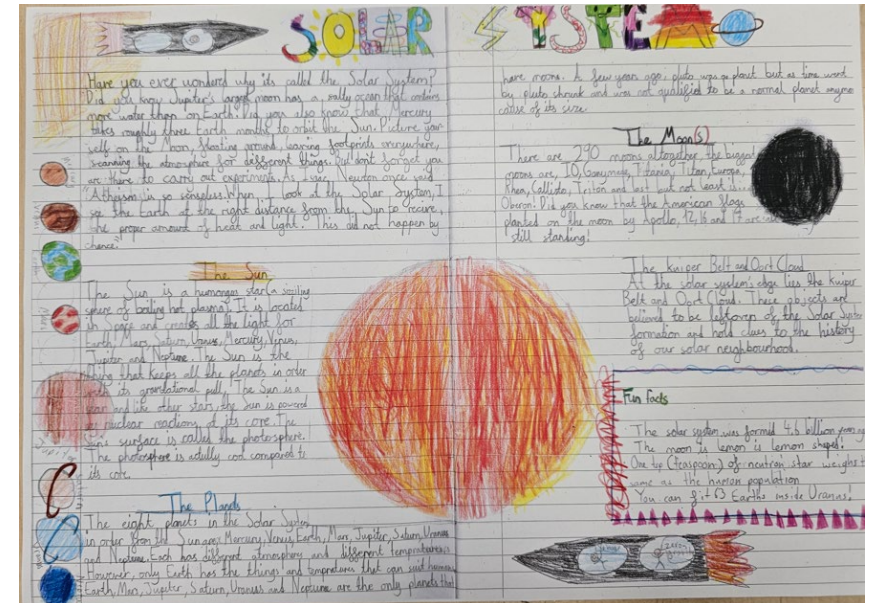 SOLAR SYSTEM
Have you ever wondered why its called the Solar System?
Did you know Jupiter's largest moon has a salty ocean that contains
more water than on Earth? Did you also know that Mercury
takes roughly three Earth months to orbit the Sun. Picture your
self on the Moon, floating around, leaving footprints everywhere,
scanning the atmosphere for different things. But don't forget you
are there to carry out experiments. As Isaac Newton once said
'Atheism is so senseless. When I look at the Solar System, I
see the Earth at the right distance from the Sun to recive,
the proper amount of heat and light. This did not happen by
chance.'
The Sun
The Sun is a humongus star (a
sphere of boiling hot plasma). It is located
in Space and creates all the light for
Earth, Mars, Saturn, Uranus, Mercury, Venus,
Jupiter and Neptune. The Sun is the
thing that keeps all the planets in order
with its gravitational pull. The Sun is a
star and like other stars, the Sun is powered
by nuclear reactions at its core. The
sun's surface is called the photosphere.
The photosphere is actully cool compared to
its core.
The Planets
The eight planets in the Solar System
in order from the Sun are: Mercury, Venus, Earth, Mars, Jupiter, Saturn, Uranus
and Neptune. Each has different atmosphere and different temperatures.
However, only Earth has the things and tempretures that can suit humans.
Earth, Mars, Jupiter, Saturn, Uranus and Neptune are the only planets that
have moons. A few years ago, pluto was a planet but as time went
by pluto shrunk and was not qualified to be a normal planet anymo
cause of its size.
The Moon(s)
There are 290 moons altogether, the biggest
moons are, IO, Ganymede, Titania, Titan, Europa,
Rhea, Callisto, Triton and last but not least is...
Oberon! Did you know that the American flags
planted on the moon by Apollo, 12, 16 and 17 are
still standing!
The kuiper Belt and Oort Cloud
At the solar system's edge lies the kuiper
Belt and Oort Cloud. These objects are
believed to be leftover of the Solar System
formation and hold clues to the history
of our solar neighbourhood.
Fun facts
The solar system was formed 4.6 billion years ag
The moon is lemon is lemon shaped!
One tsp (teaspoon) of neutron star weighs t
same as the human population
You can fit 63 Earths inside Uranus!